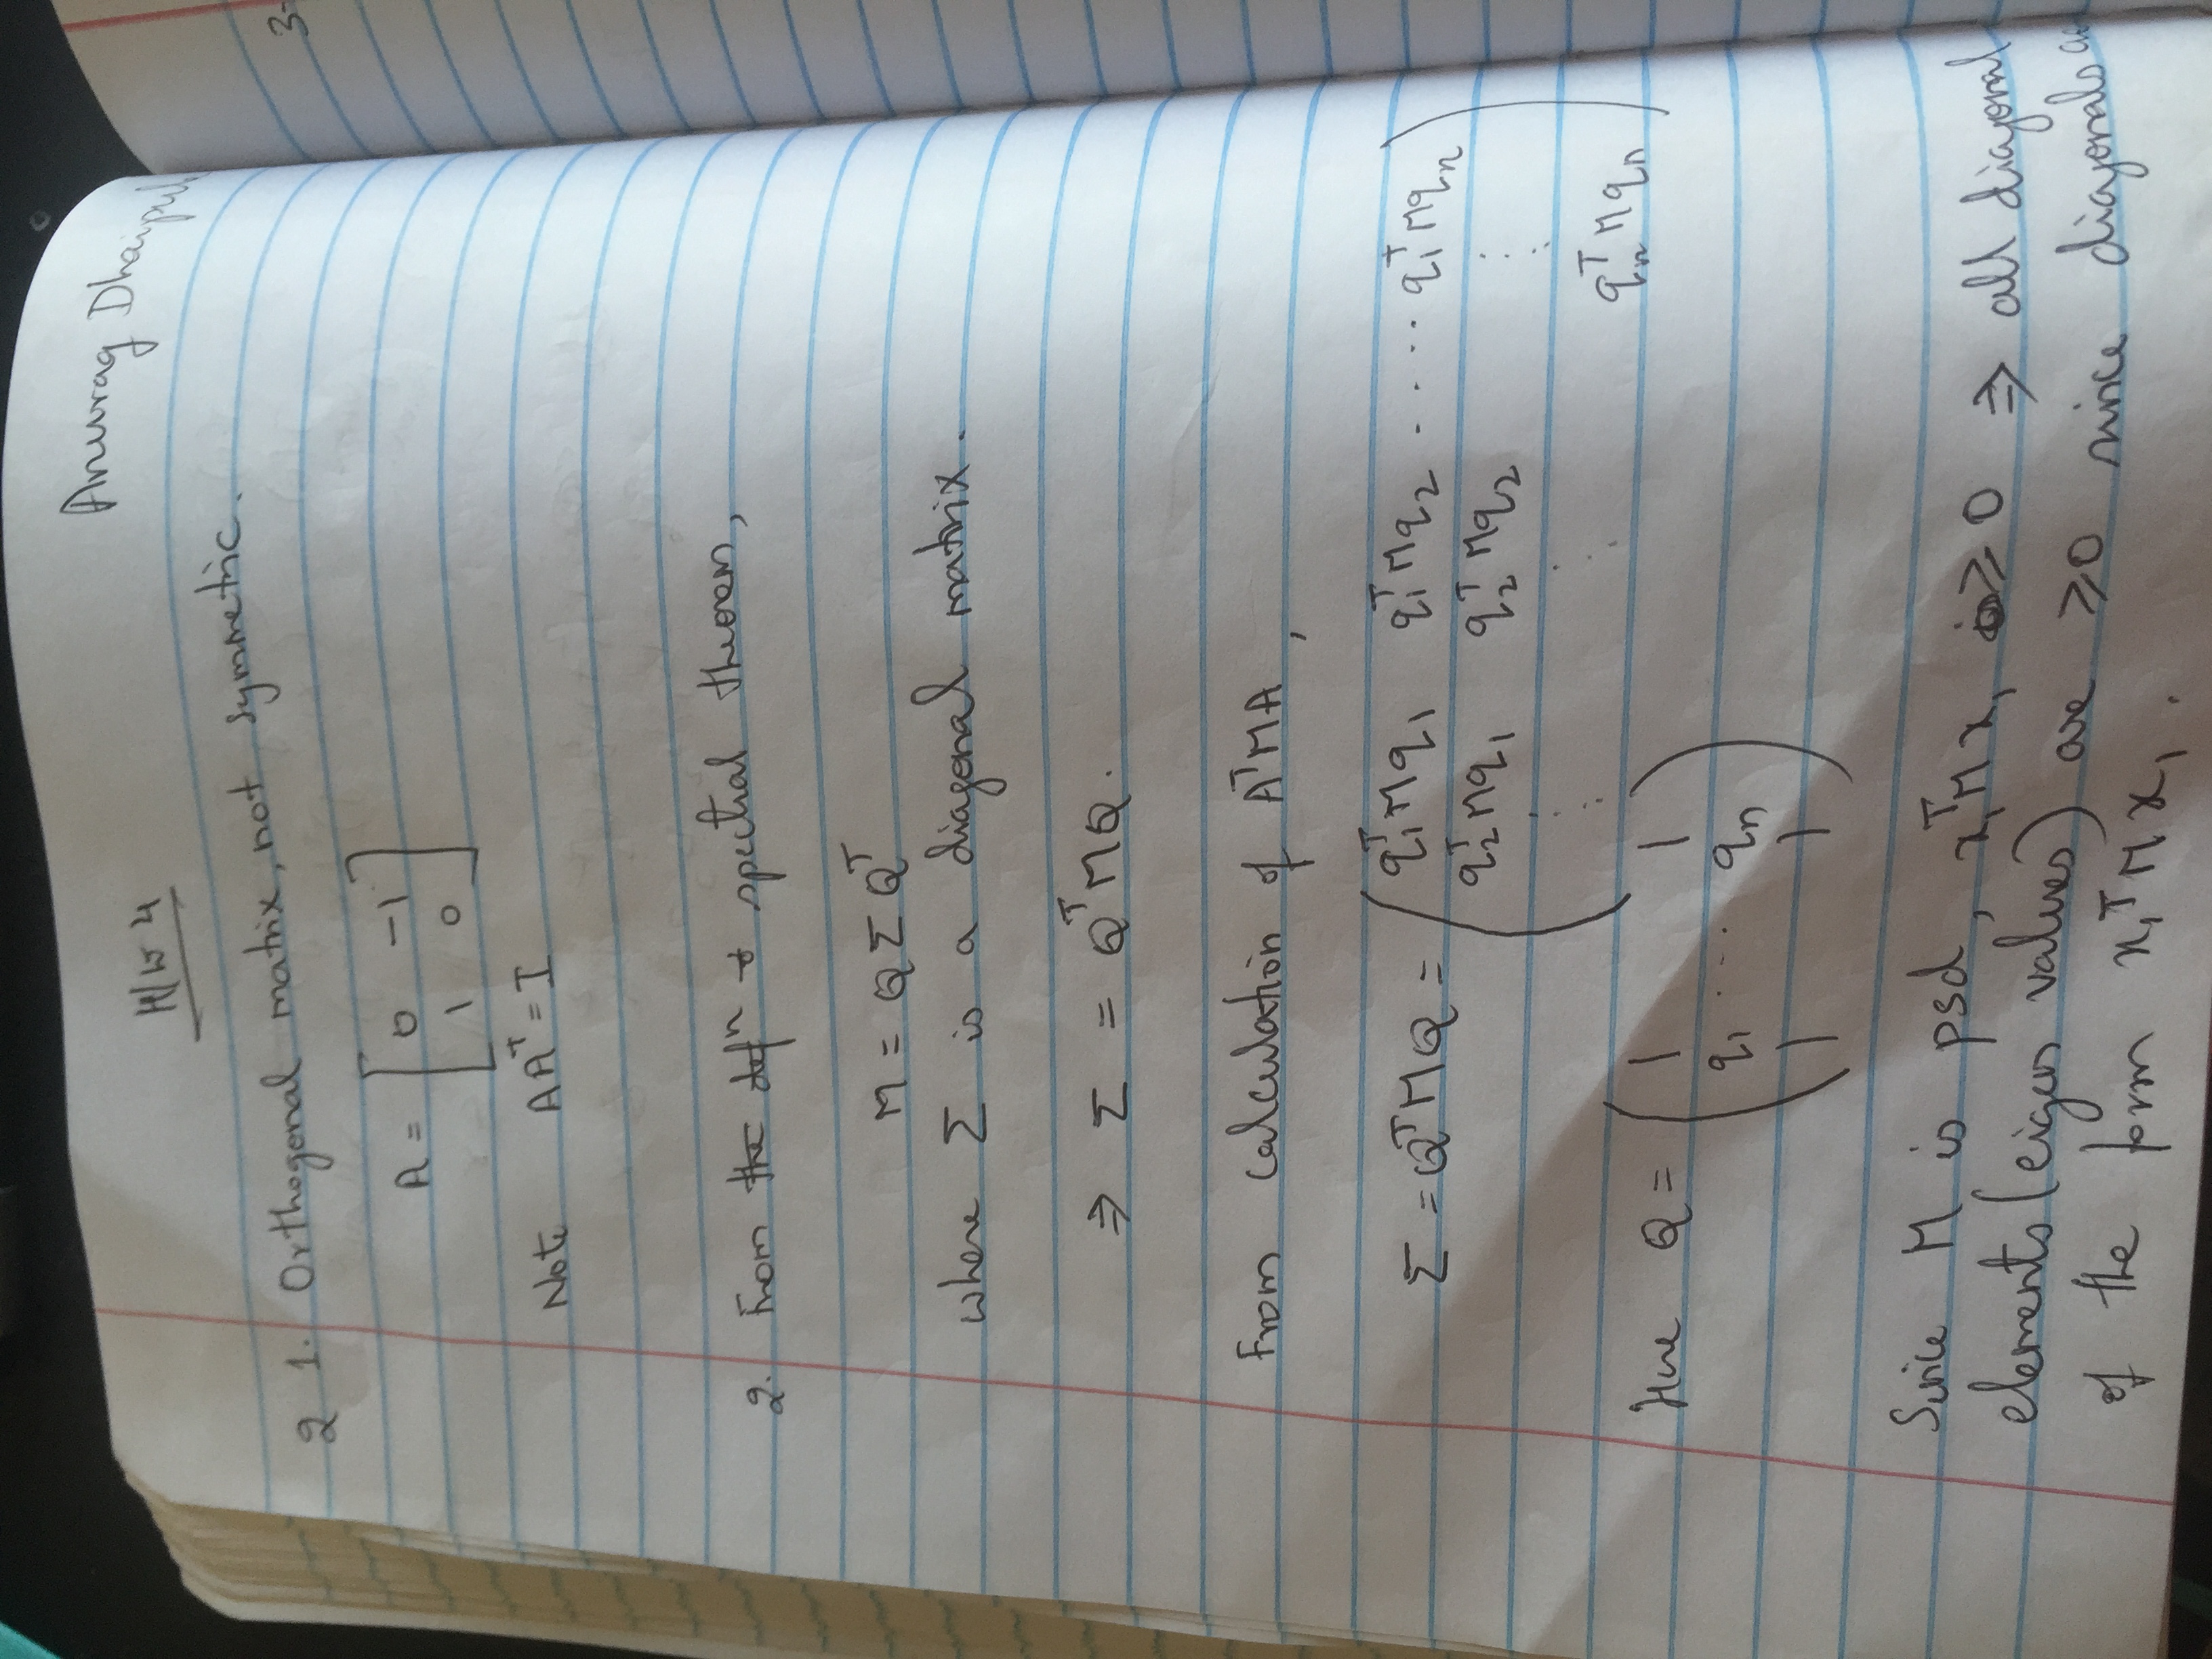 Anurag
H/W 4
2 1. Orthogonal matrix, not symmetric.
A = [ 0 -1
1 0 ]
Note AAᵀ = I
2. From the defⁿ spectral theorem,
M = QΣQᵀ
where Σ is a diagonal matrix.
⇒ Σ = QᵀMQ.
From calculation of AᵀMA,
Σ = QᵀMQ = ( q₁ᵀMq₁ q₁ᵀMq₂ ..... q₁ᵀMqₙ
q₂ᵀMq₁ q₂ᵀMq₂ :
: . :
: . qₙᵀMqₙ )
Here Q = ( | |
q₁ ... qₙ
| | )
Since M is psd, x₁ᵀMx₁ ≥ 0 ⇒ all diagonal
elements (eigen values) are ≥0 since diagonals
of the form x₁ᵀMx₁.
3-